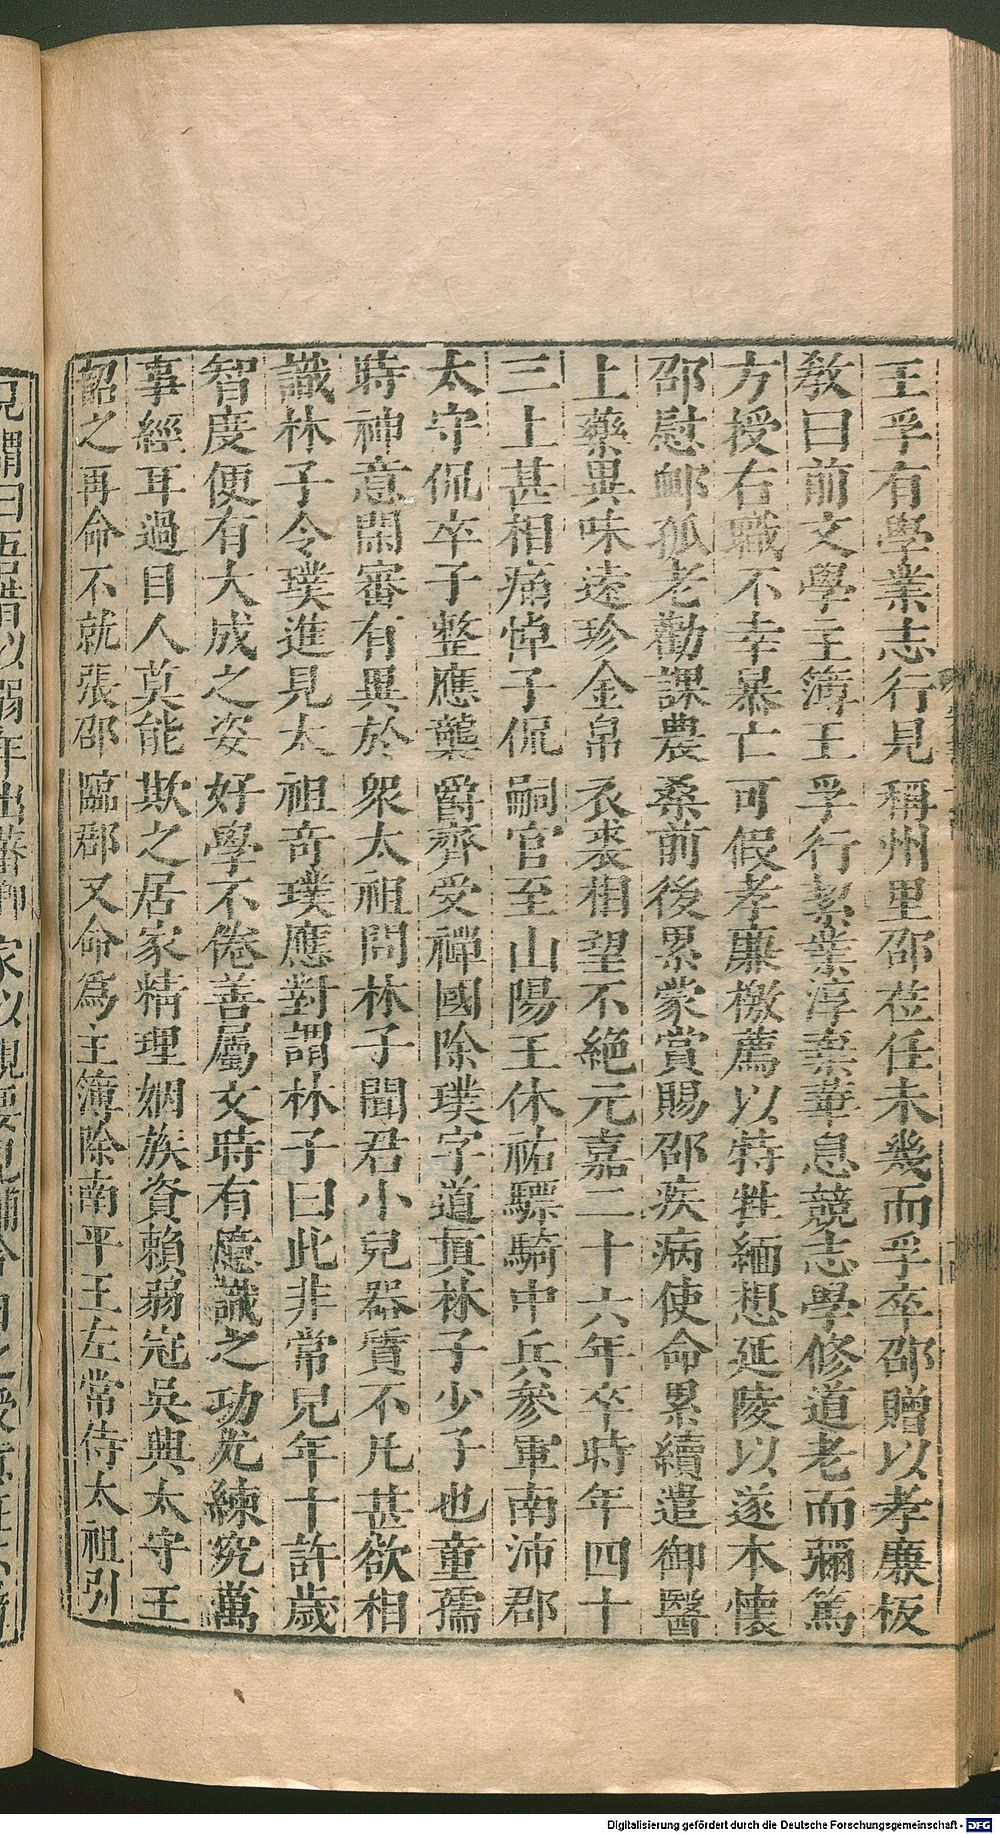 王孚有學業志行見稱州里邵莅任未幾而孚卒邵贈以孝廉板
敎曰前文學主簿王孚行絜業淳棄華息競志學修道老而彌篤
方授右職不幸暴亡可假孝廉檄薦以特牲緬想延陵以遂本懷
邵慰衈孤老勸課農桑前後累蒙賞賜邵疾病使命累續遣御醫
上藥異味遠珍金帛衣裘相望不絕元嘉二十六年卒時年四十
三上甚相痛悼子侃嗣官至山陽王休祐驃騎中兵參軍南沛郡
太守侃卒子整應襲爵齊受禪國除璞字道真林子少子也童孺
時神意閑審有異於衆太祖問林子聞君小兒器質不凡甚欲相
識林子令璞進見太祖奇璞應對謂林子曰此非常兒年十許歲
智度便有大成之姿好學不倦善屬文時有憶識之功尤練究萬
事經耳過目人莫能欺之居家精理姻族資賴弱冠吳興太守王
韶之再命不就張邵臨郡又命爲主簿除南平王左常侍太祖引
Digitalisierung gefördert durch die Deutsche Forschungsgemeinschaft - DFG